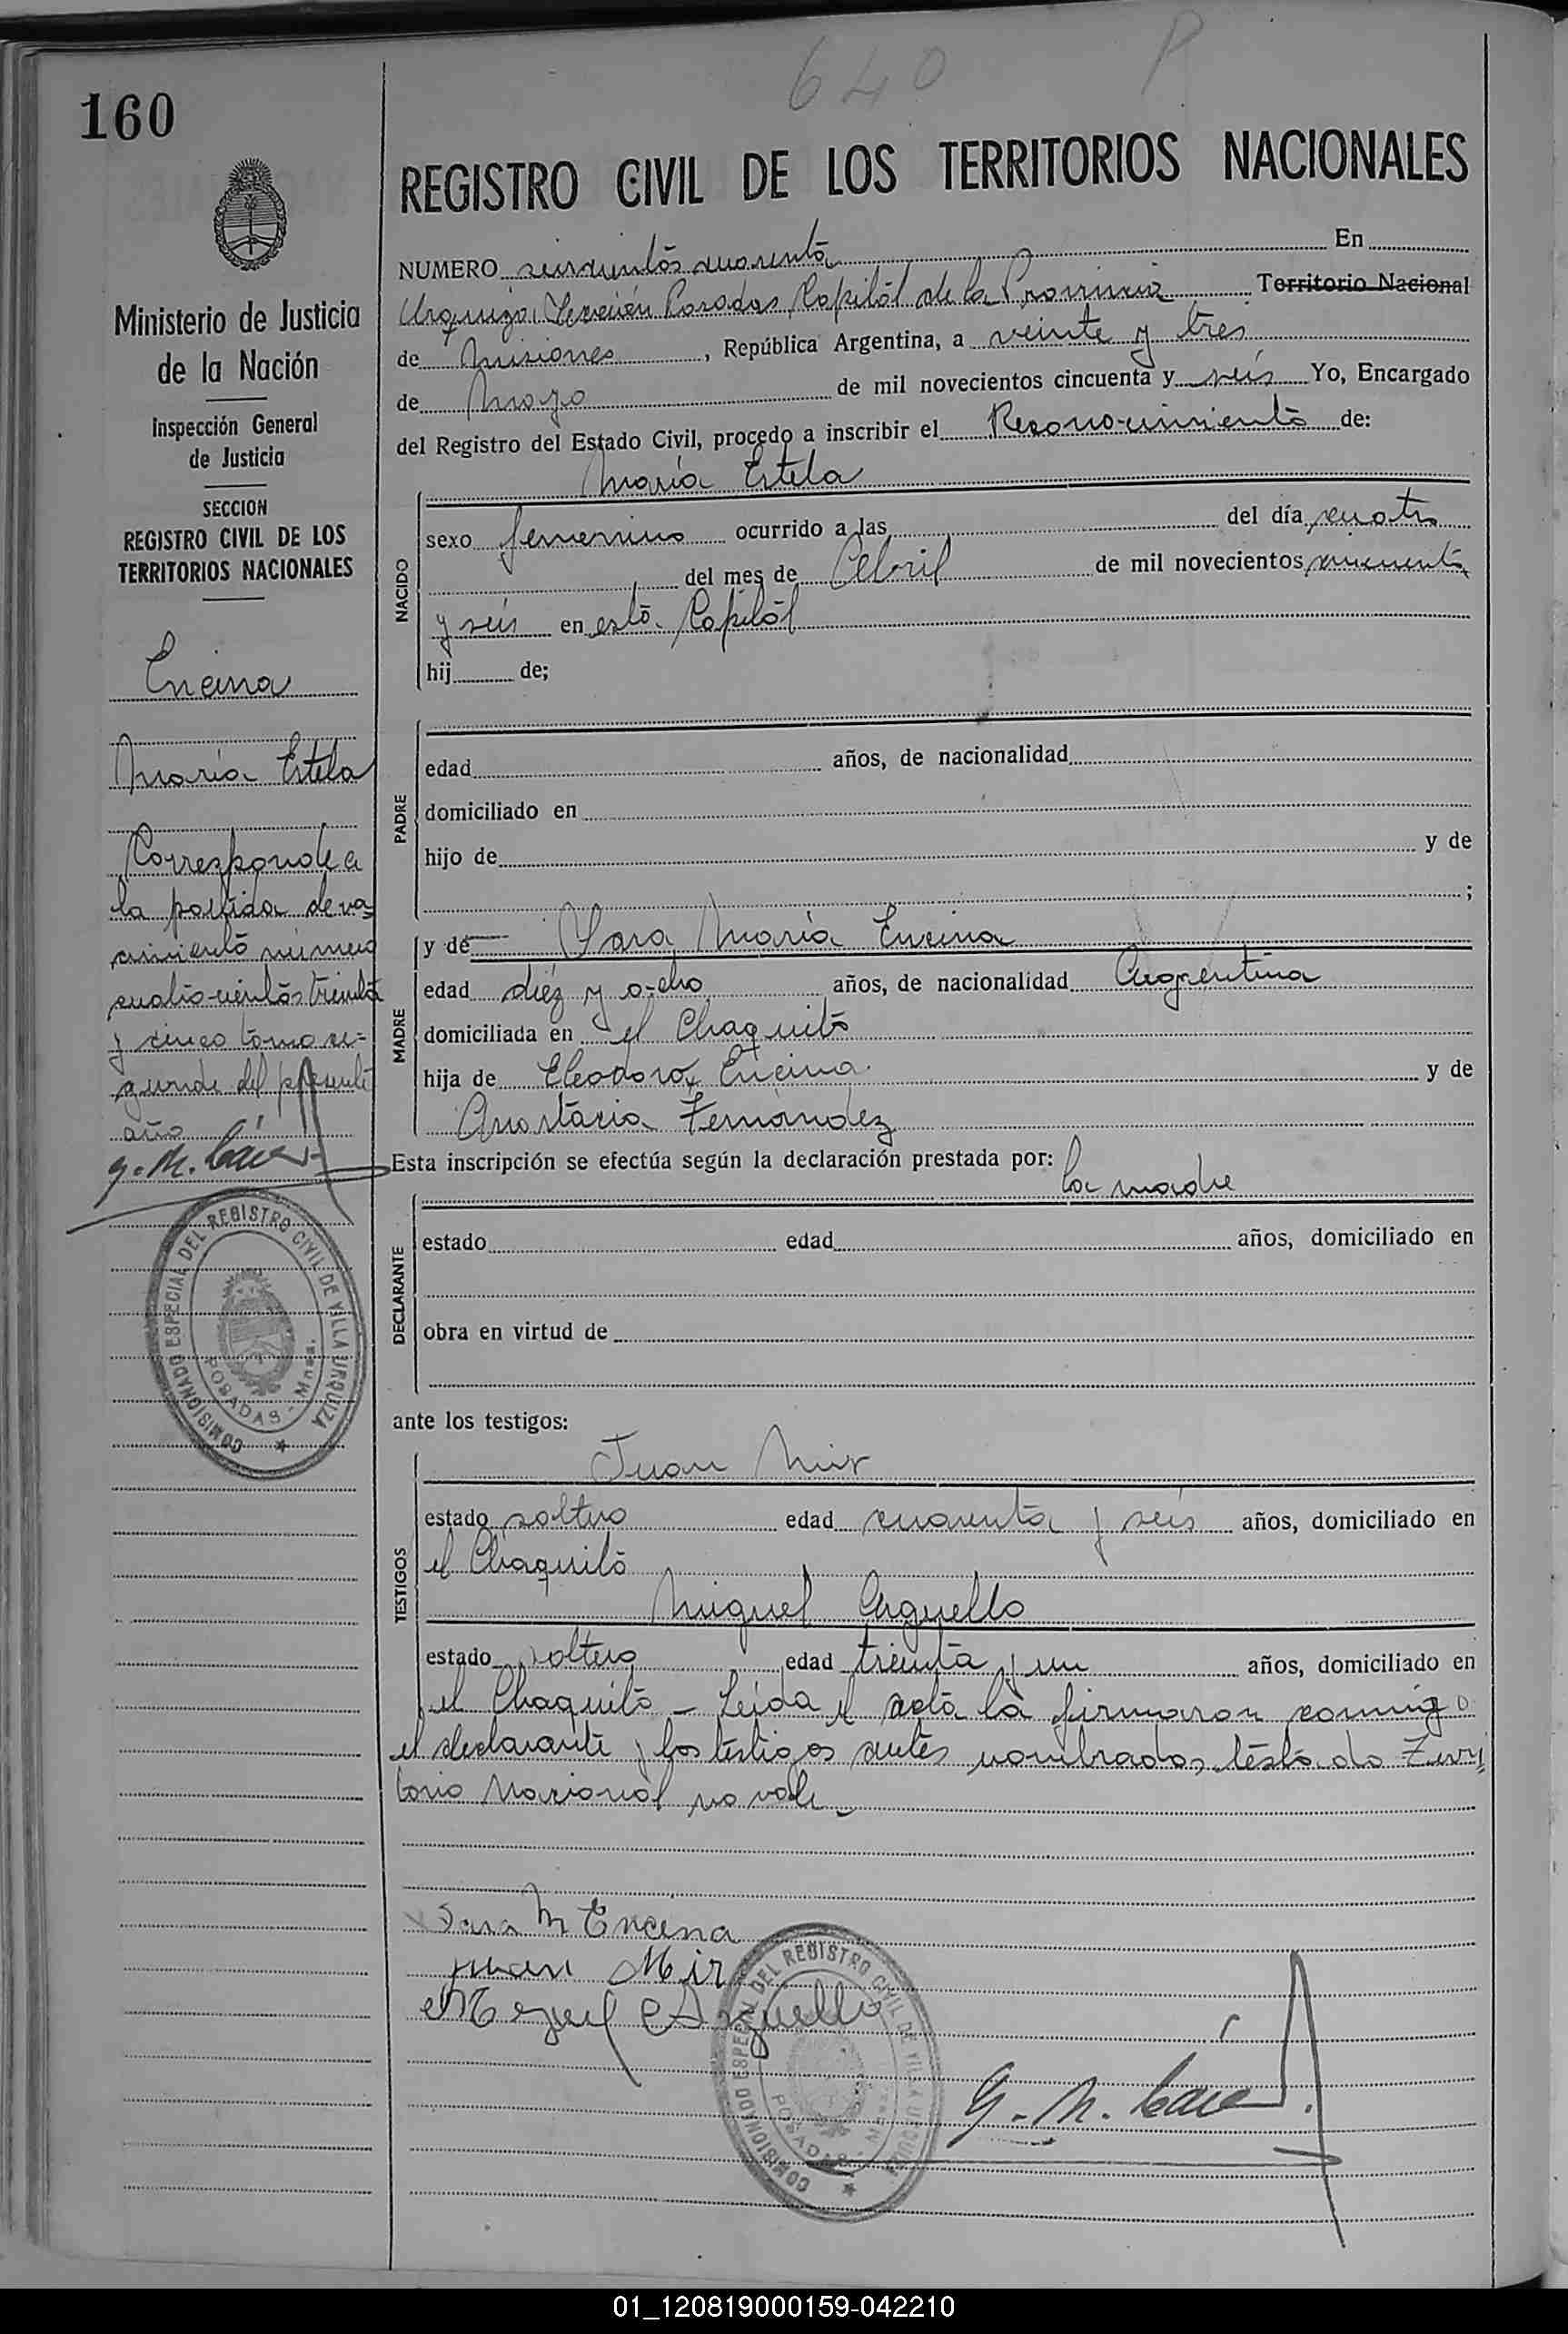 640 P
160
REGISTRO CIVIL DE LOS TERRITORIOS NACIONALES
Ministerio de Justicia
de la Nación
Inspección General
de Justicia
SECCION
REGISTRO CIVIL DE LOS
TERRITORIOS NACIONALES
Encina
María Estela
Corresponde a
la partida de na
cimiento número
cuatrocientos treinta
y cinco tomo se-
gundo del presente
año
COMISIONADO ESPECIAL DEL REGISTRO CIVIL DE VILLA URQUIZA
POSADAS - Mnes.
NUMERO seiscientos cuarenta En
Urquiza, Sección Posadas Capital de la Provincia Territorio Nacional
de Misiones, República Argentina, a veinte y tres
de Mayo de mil novecientos cincuenta y seis Yo, Encargado
del Registro del Estado Civil, procedo a inscribir el Reconocimiento de:
María Estela
NACIDO
sexo femenino ocurrido a las del día cuatro
del mes de Abril de mil novecientos cincuenta
y seis en esta Capital
hij de;
PADRE
edad años, de nacionalidad
domiciliado en
hijo de y de
;
MADRE
y de Sara María Encina
edad diez y ocho años, de nacionalidad Argentina
domiciliada en el Chaquito
hija de Eleodoro Encina y de
Anastacia Fernández
Esta inscripción se efectúa según la declaración prestada por:
la madre
DECLARANTE
estado edad años, domiciliado en
obra en virtud de
ante los testigos:
TESTIGOS
Juan Mir
estado soltero edad cuarenta y seis años, domiciliado en
el Chaquito
Miguel Arguello
estado soltero edad treinta y un años, domiciliado en
el Chaquito - Leida el acta la firmaron conmigo
el declarante y los testigos antes nombrados, testado Terri
torio Nacional no vale -
Sara M Encina
Juan Mir
Miguel Arguello
COMISIONADO ESPECIAL DEL REGISTRO CIVIL DE VILLA URQUIZA
POSADAS - Mnes.
01_120819000159-042210